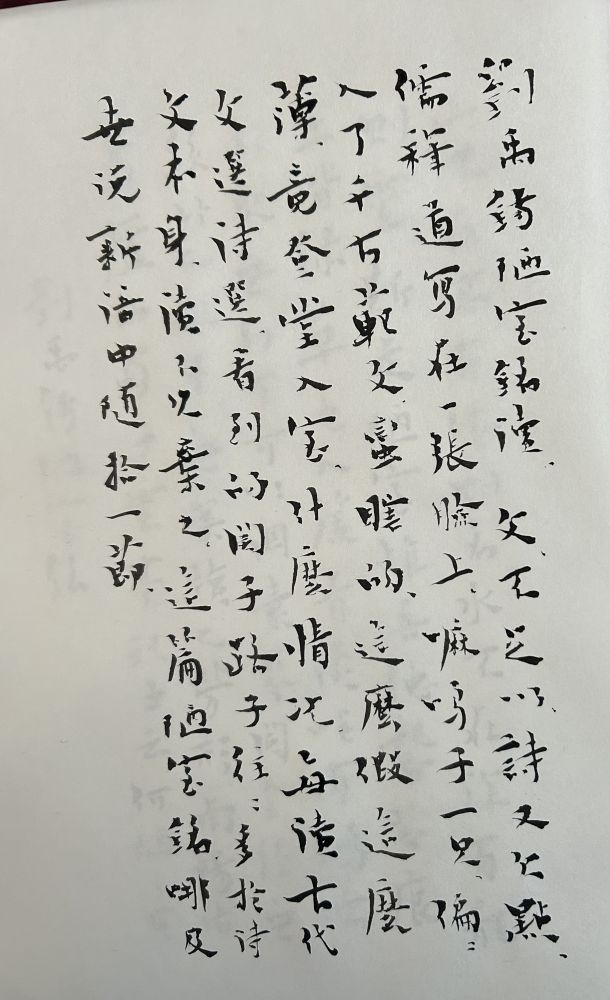 劉禹錫陋室銘讀、文不足以、詩又欠點、
儒釋道寫在一張臉上、嘛嗎于一只、偏〻
入了千古範文、蠻瞎的、這麼假這麼
薄、竟登堂入室、什麼情况、每讀古代
文選詩選、看到的関子路子往〻多於詩
文本身、讀不况棄之、這篇陋室銘、哪及
世说新语中随拾一節、